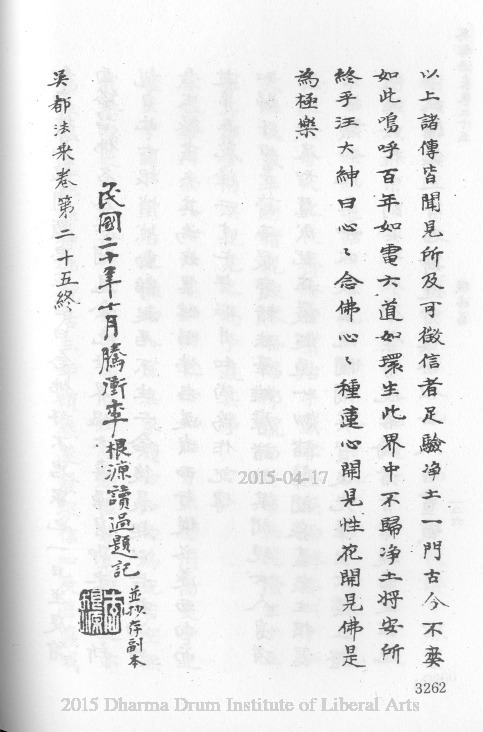 以上諸傳皆聞見所及可徵信者足驗净土一門古今不爽
如此嗚呼百年如電六道如環生此界中不歸净土將安所
終乎汪大紳曰心〻念佛心〻種蓮心開見性花開見佛是
為極樂
民國二十年十月騰衝李根源讀過題記
並抄存副本
李根源
吳都法乘卷第二十五終
2015-04-17
3262
2015 Dharma Drum Institute of Liberal Arts